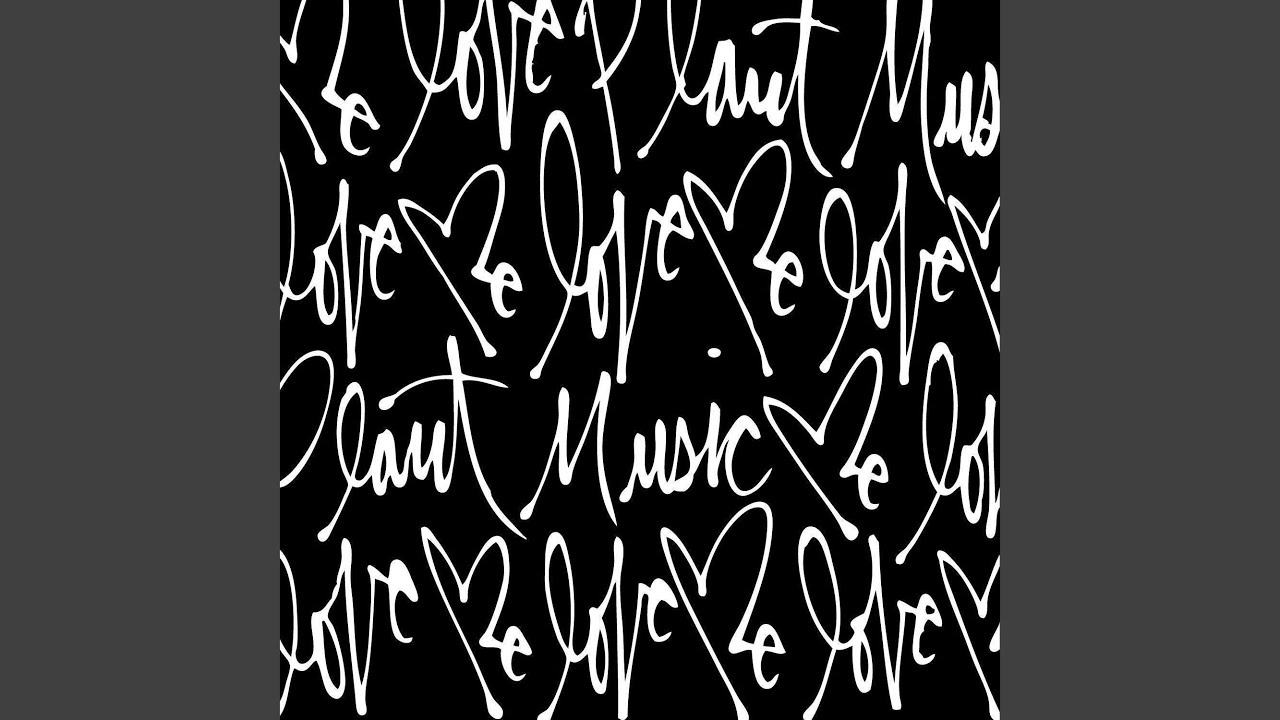 We love Plaut Mus
love We love We love
Plaut Music We lov
love We love We love